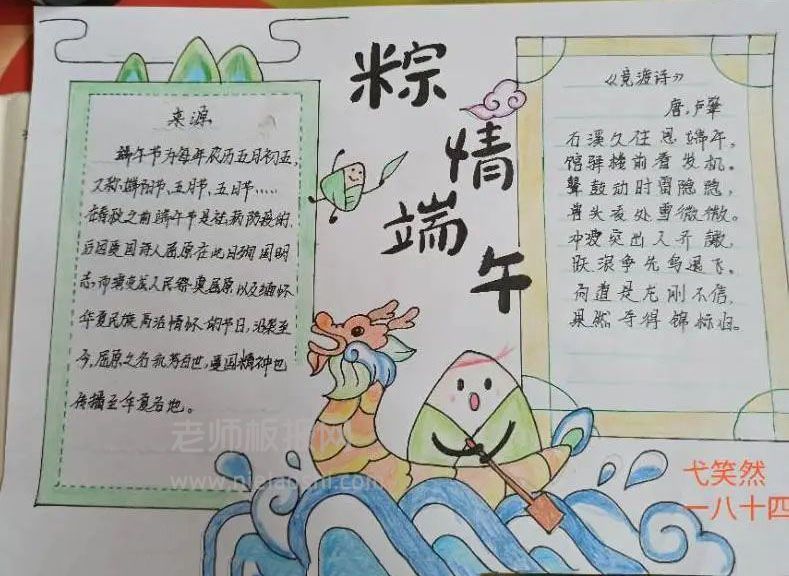 粽情端午
来源
端午节为每年农历五月初五，
又称端阳节、五月节、五日节.....
在春秋之前端午节是祛病防疫的，
后因爱国诗人屈原在此日殉国明
志，而演变成人民祭奠屈原以及缅怀
华夏民族高洁情怀的节日，沿袭至
今，屈原之名流芳百世，爱国精神也
传播至华夏各地。
《竞渡诗》
唐，卢肇
石溪久住思端午，
馆驿楼前看发机。
鼙鼓动时雷隐隐，
兽头凌处雪微微。
冲波突出人齐譀，
跃浪争先鸟退飞。
向道是龙刚不信，
果然夺得锦标归。
老师板报网
www.nielaoshi.com
弋笑然
一八十四